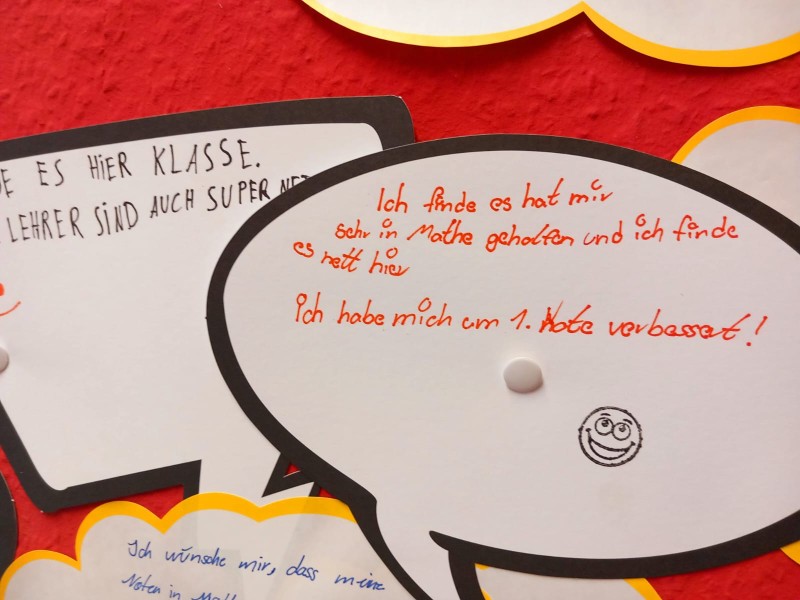 ES HiER KLASSE.
LEHRER SiND AUCH SUPER
Ich finde es hat mir
sehr in Mathe geholfen und ich finde
es nett hier
Ich habe mich um 1. Note verbessert!
Ich wünsche mir, dass meine
Noten in